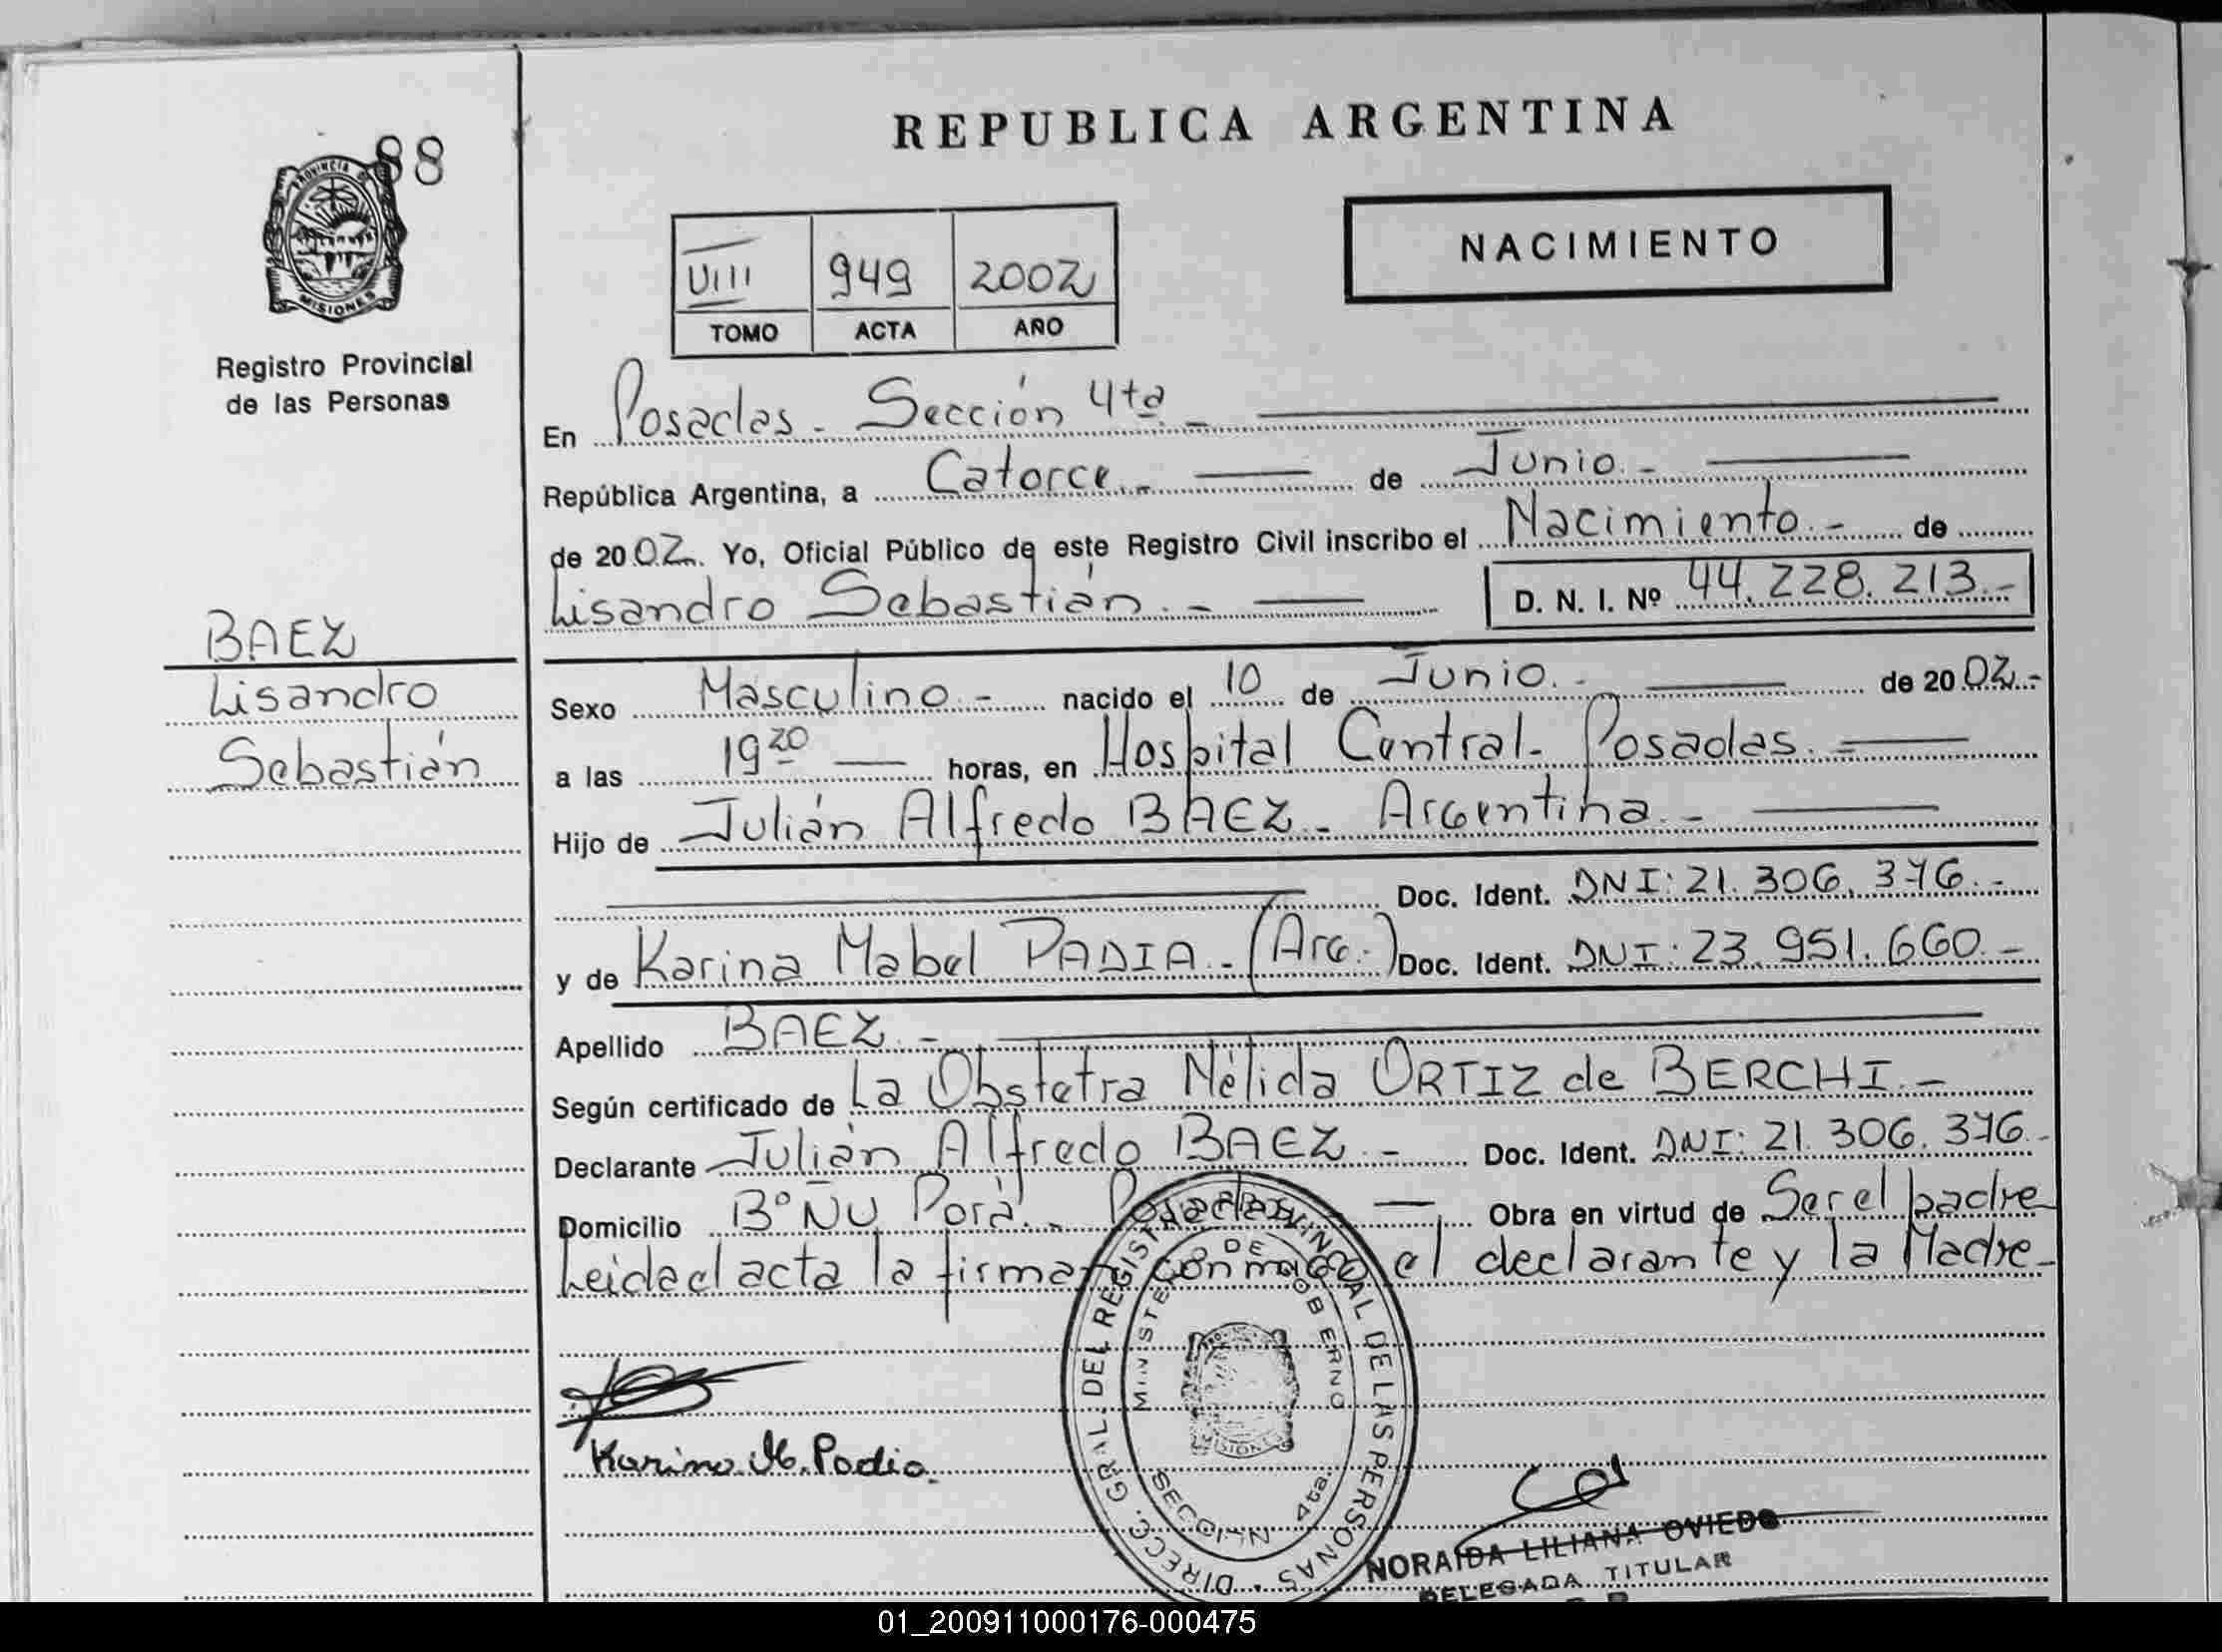 REPUBLICA ARGENTINA
88
PROVINCIA DE MISIONES
Registro Provincial
de las Personas
VIII 949 2002
TOMO ACTA AÑO
NACIMIENTO
En Posadas - Sección 4ta -
República Argentina, a Catorce - de Junio -
de 2002. Yo, Oficial Público de este Registro Civil inscribo el Nacimiento - de
Lisandro Sebastián. - D. N. I. Nº 44.228.213.-
BAEZ
Lisandro
Sebastián
Sexo Masculino.- nacido el 10 de Junio.- de 2002.-
a las 19 20 horas, en Hospital Central - Posadas. -
Hijo de Julián Alfredo BAEZ - Argentina. -
Doc. Ident. DNI: 21.306.376.-
y de Karina Mabel PADIA - (Arg.-) Doc. Ident. DNI: 23.951.660.-
Apellido BAEZ. -
Según certificado de La Obstetra Nélida ORTIZ de BERCHI. -
Declarante Julián Alfredo BAEZ. - Doc. Ident. DNI: 21.306.376.-
Domicilio Bº ÑU Porá. - Posadas - Obra en virtud de Ser el padre
Leida el acta la firman conmigo el declarante y la Madre -
Karina M. Padia.
DIRECC. GRAL. DEL REGISTRO PROVINCIAL DE LAS PERSONAS
MINISTERIO DE GOBIERNO
SECCION 4ta.
NORAIDA LILIANA OVIEDO
DELEGADA TITULAR
01_200911000176-000475